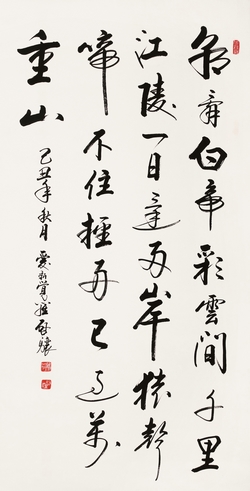 朝辭白帝彩雲間千里
江陵一日還兩岸猿聲
啼不住輕舟已過萬
重山
己丑年秋月愛新覺羅啟驤